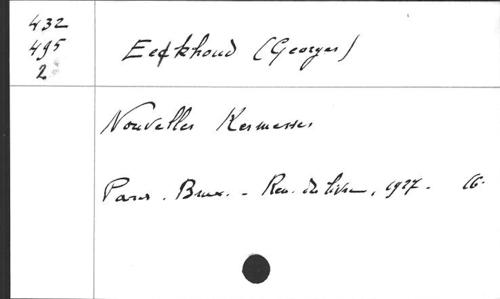 432
495
2
Eekhoud (Georges)
Nouvelles Kermesses
Paris. Brux. - Ren. du livre, 1927. - 16.